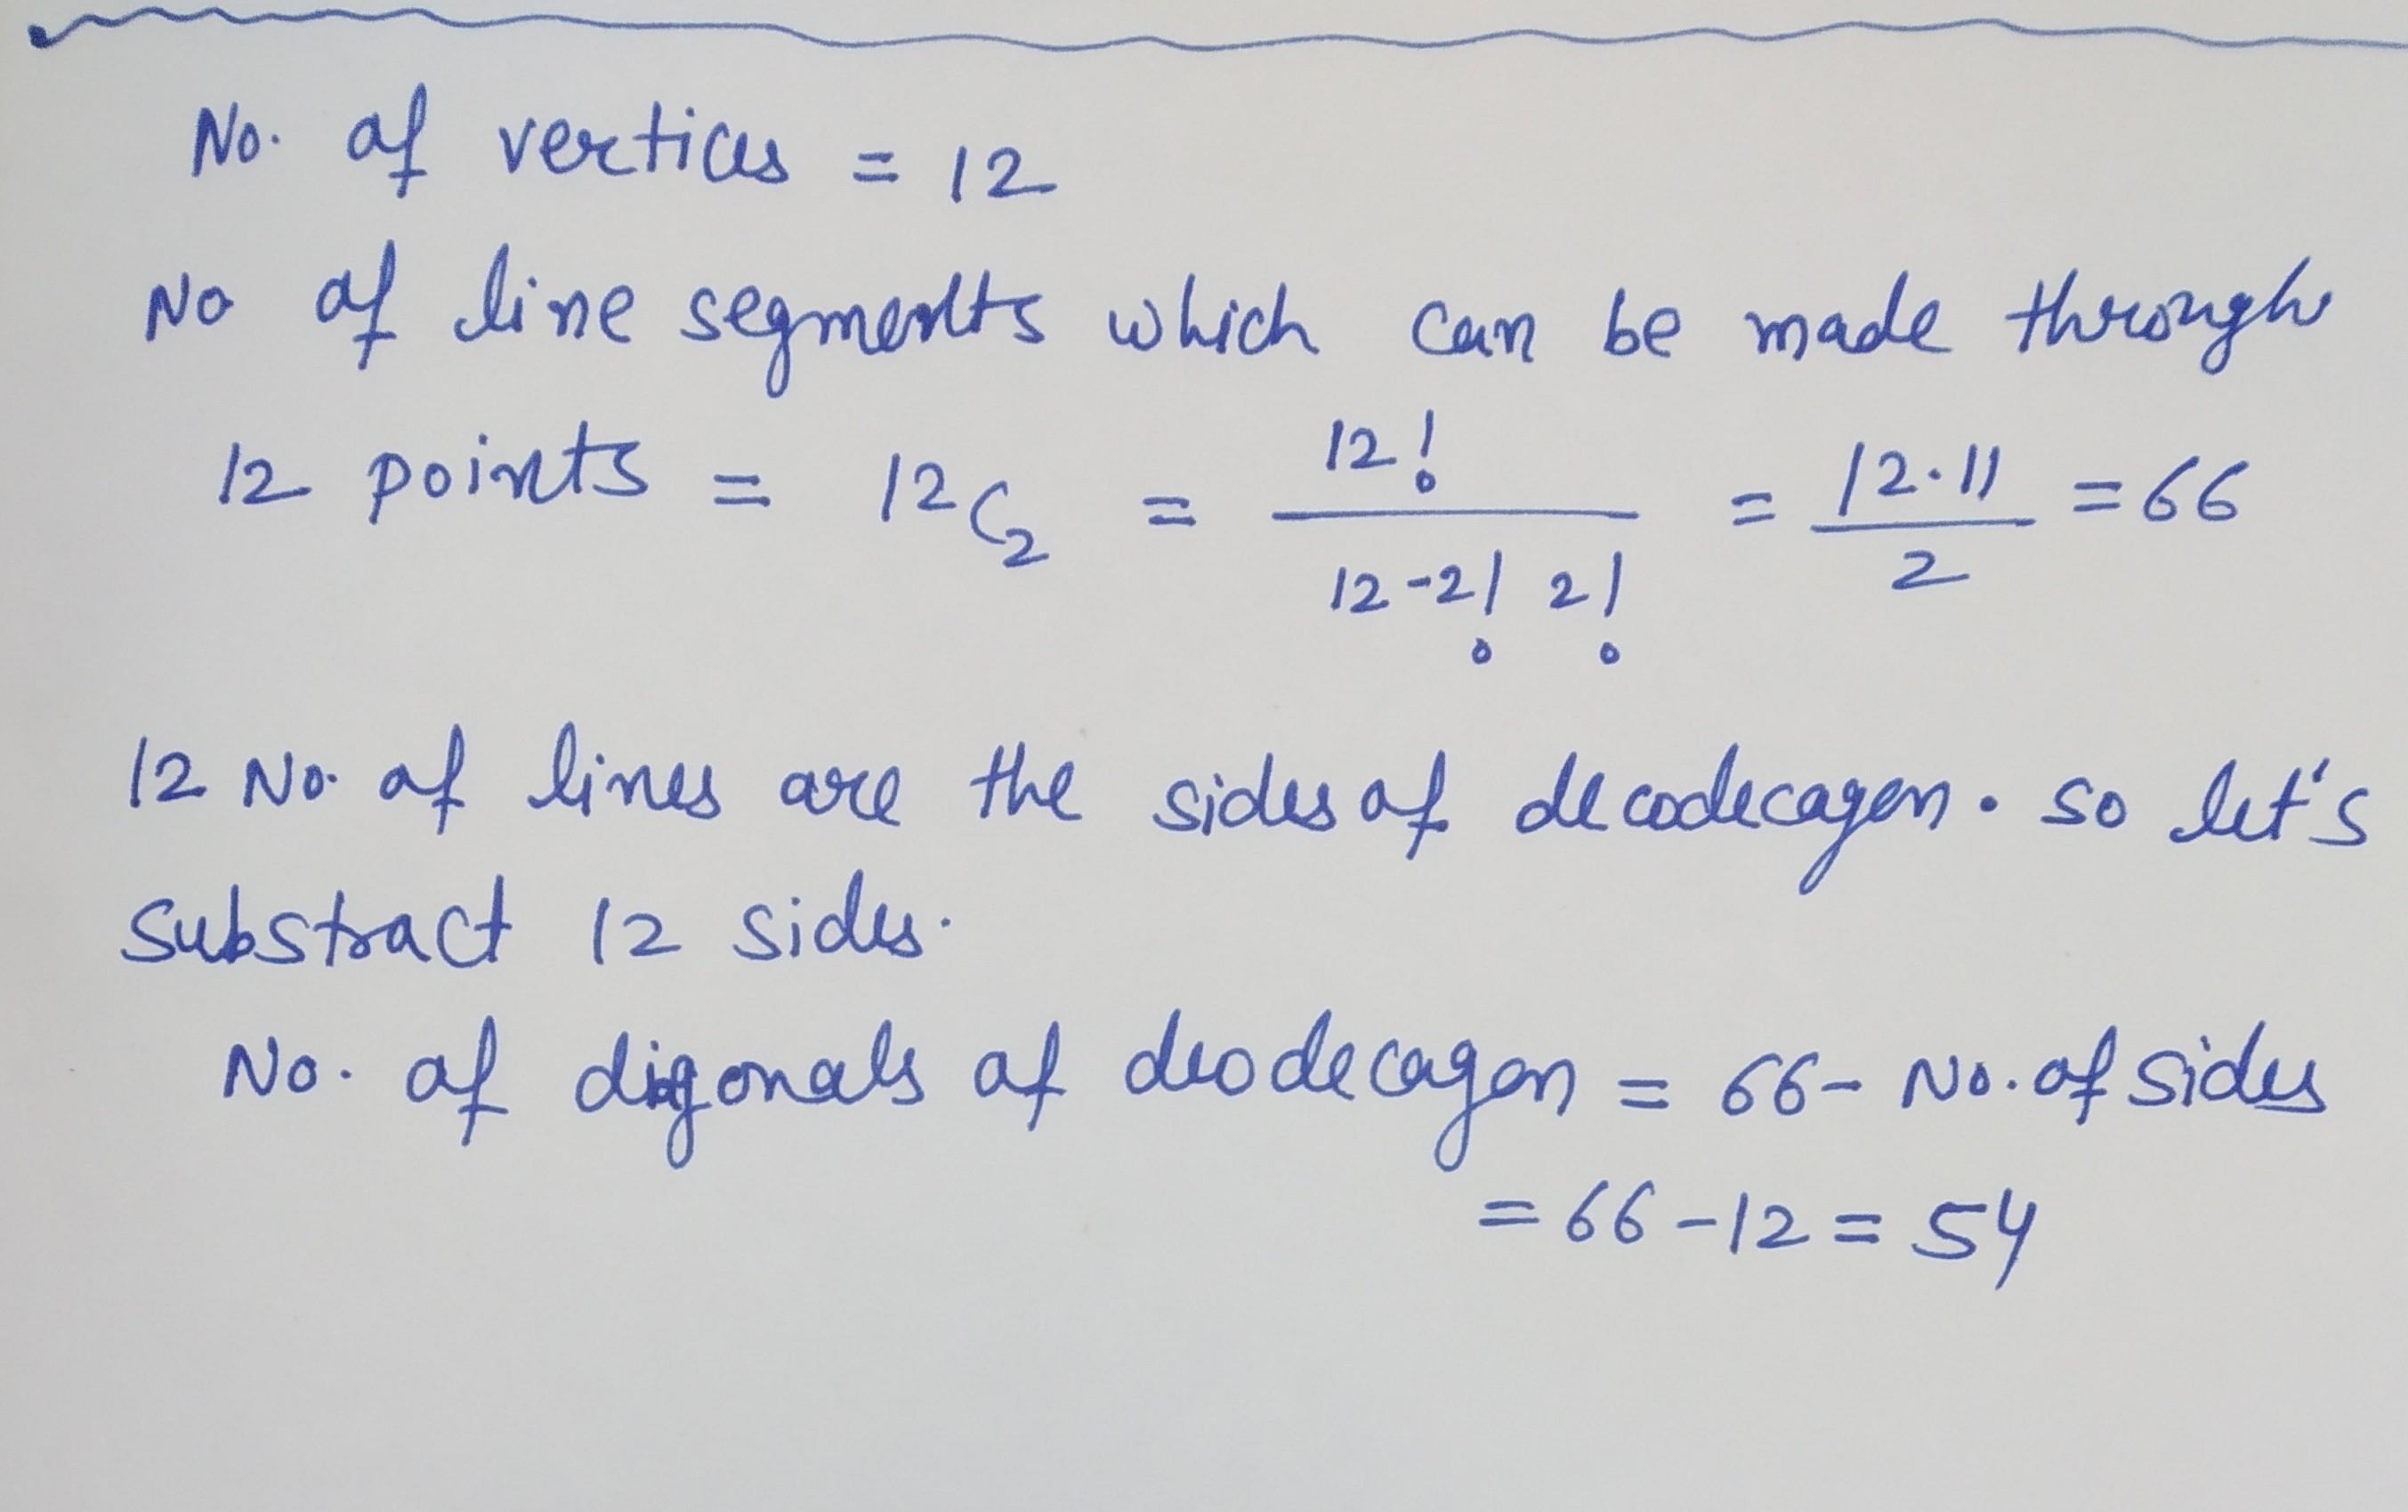 No. of vertices = 12
No of line segments which can be made through
12 points = 12C₂ = 12! / 12-2! 2! = 12·11 / 2 = 66
12 No. of lines are the sides of decodecagon. so let's
substract 12 sides.
No. of digonals of deodecagon = 66- No. of sides
= 66-12 = 54